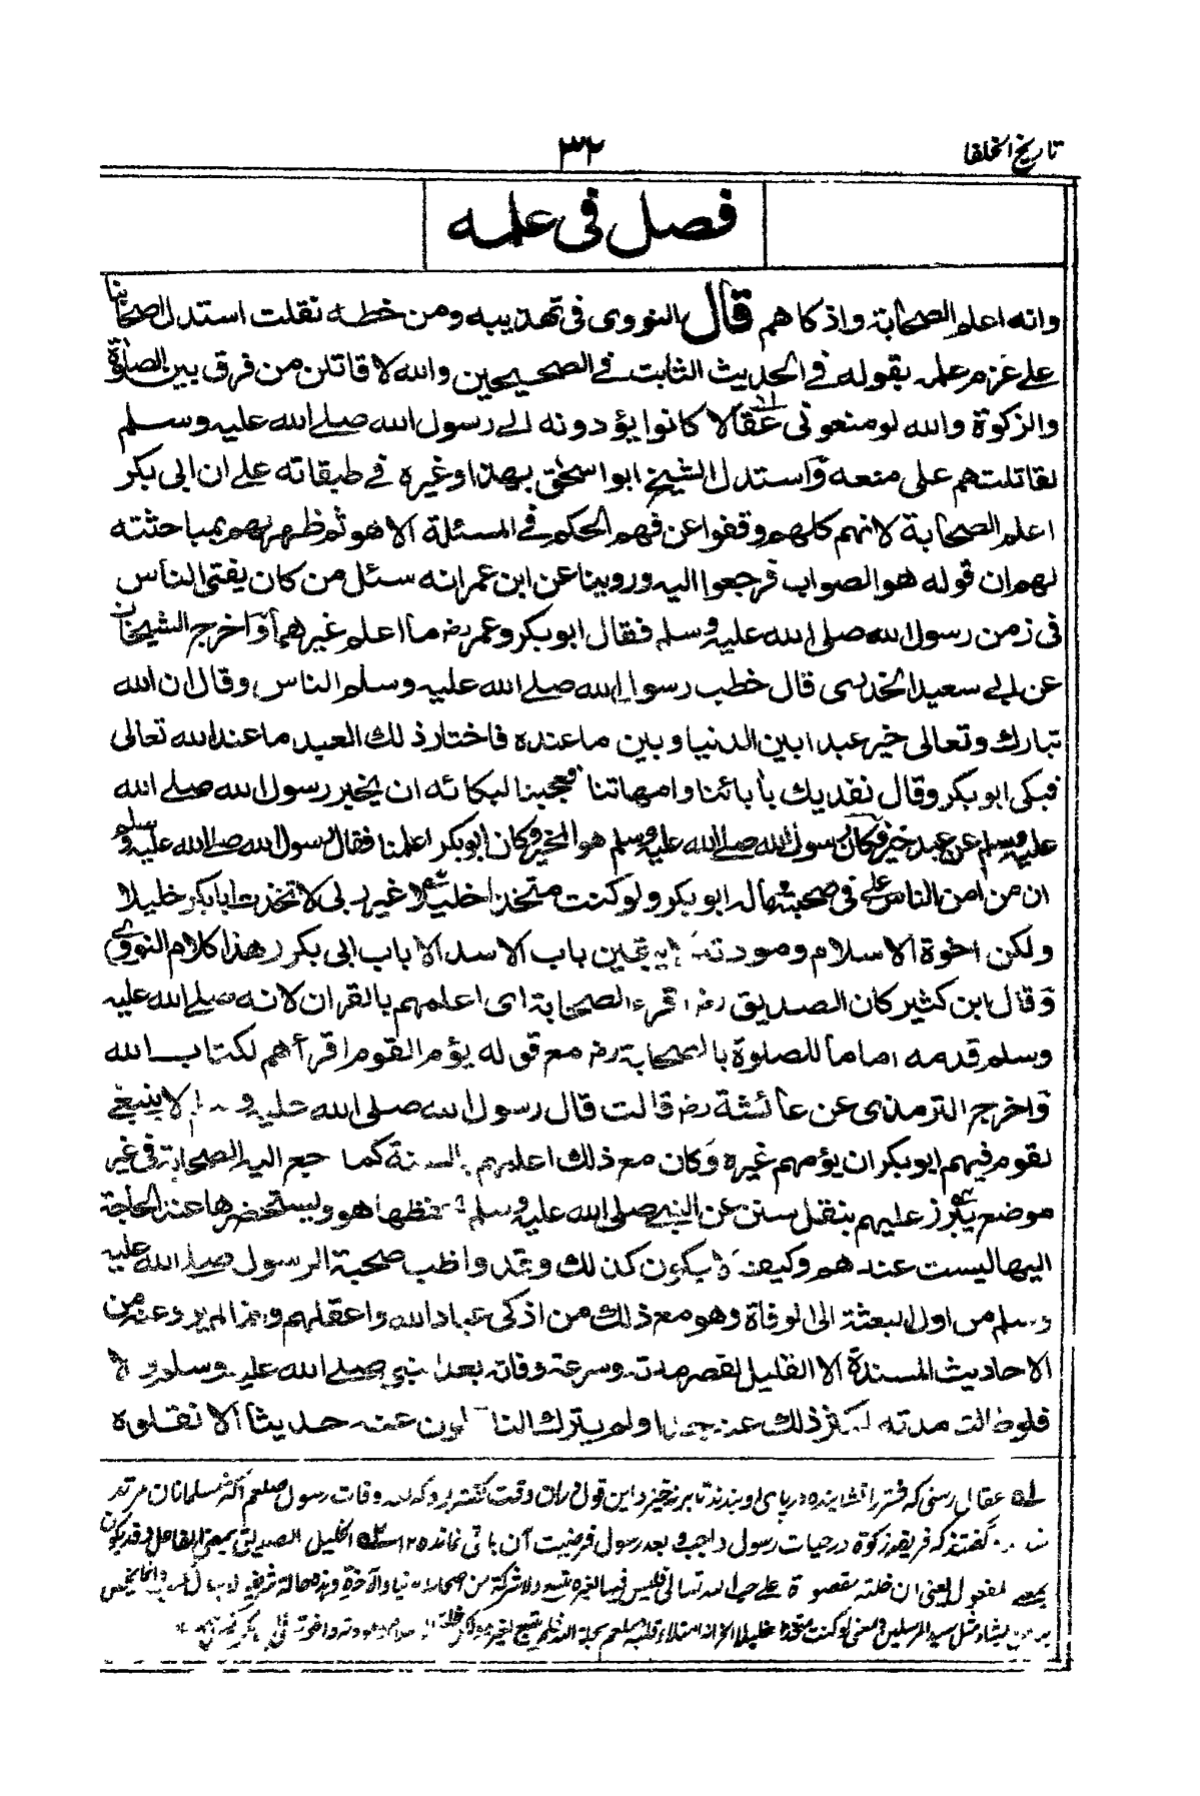 تاريخ الخلفا
٣٢
فصل فى علمه
وانه اعلم الصحابة واذكاهم قال النووى فى تهذيبه ومن خطه نقلت استدل اصحابنا
على عزم علمه بقوله فى الحديث الثابت فى الصحيحين والله لاقاتلن من فرق بين الصلوة
والزكوة والله لو منعونى عقالا كانوا يؤدونه الى رسول الله صلى الله عليه وسلم
لقاتلتهم على منعه واستدل الشيخ ابو اسحق بهذا وغيره فى طبقاته على ان ابى بكر
اعلم الصحابة لانهم كلهم وقفوا عن فهم الحكم فى المسئلة الا هو ثم ظهر لهم بمباحثته
لهم ان قوله هو الصواب فرجعوا اليه وروينا عن ابن عمر انه سئل من كان يفتى الناس
فى زمن رسول الله صلى الله عليه وسلم فقال ابوبكر وعمر رضـ ما اعلم غيرهما واخرج الشيخان
عن ابى سعيد الخدرى قال خطب رسول الله صلى الله عليه وسلم الناس وقال ان الله
تبارك وتعالى خير عبدا بين الدنيا وبين ما عنده فاختار ذلك العبد ما عند الله تعالى
فبكى ابوبكر وقال نفديك بأبائنا وامهاتنا فعجبنا لبكائه ان يخبر رسول الله صلى الله
عليه وسلم عن عبد خير فكان رسول الله صلى الله عليه وسلم هو المخير وكان ابوبكر اعلمنا فقال رسول الله صلى الله عليه وسلم
ان من امن الناس على فى صحبته وماله ابوبكر ولو كنت متخذا خليلا غير ربى لاتخذت ابابكر خليلا
ولكن اخوة الاسلام ومودته باب الا سد الا باب ابى بكر هذا كلام النووى
وقال ابن كثير كان الصديق رضـ اقرء الصحابة اى اعلمهم بالقران لانه صلى الله عليه
وسلم قدمه اماما للصلوة بالصحابة رضـ مع قوله يؤم القوم اقرأهم لكتاب الله
واخرج الترمذى عن عائشة رضـ قالت قال رسول الله صلى الله عليه و لا ينبغى
لقوم فيهم ابوبكر ان يؤمهم غيره وكان مع ذلك اعلمهم بالسنة كما رجع اليه الصحابة فى غير
موضع يبرز عليهم بنقل سنن عن النبى صلى الله عليه وسلم يحفظها هو ويستحضرها عند الحاجة
اليها ليست عندهم وكيف لا يكون كذلك وقد واظب صحبة الرسول صلى الله عليه
وسلم من اول البعثة الى الوفاة وهو مع ذلك من اذكى عباد الله واعقلهم وانما لم يرو عنه من
الاحاديث المسندة الا القليل لقصر مدته وسرعة وفاته بعد النبى صلى الله عليه وسلم والا
فلو طالت مدته لكثر ذلك عنه جدا ولم يترك الناقلون عنه حديثا الا نقلوه
له عقال رسنى كه شتر را نشانيده در پاى او بندند تا برنخيزد اين قول وقت گفته بود كه بعد وفات رسول صلعم اكثر مسلمانان مرتد
گفتند كه فريقه زكوة در حيات رسول واجب و بعد رسول فرضيت آن باقى نمانده ١٢ الخليل الصديق بمعنى الفاعل وقد يكون
بمعنى مفعول يعنى ان خلته مقصورة على حب الله تعالى فليس فيها لغيره متسع ولا شركة من